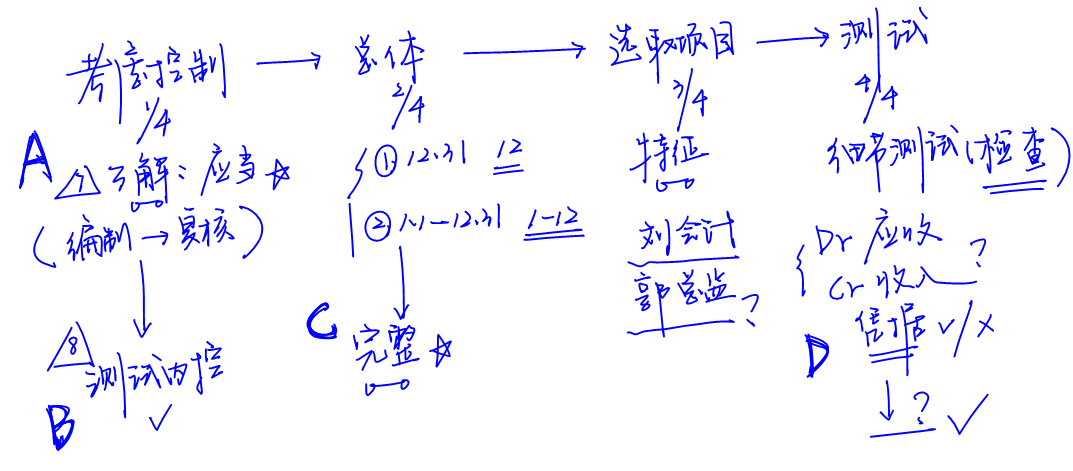 考虑控制 → 总体 → 选取项目 → 测试
1/4 2/4 3/4 4/4
A
7 了解：应当☆
（编制→复核）
↓
8 测试内控
B ✓
① 12.31 12
② 1.1—12.31 1-12
↓
C 完整☆
特征
刘会计
郭总监？
细节测试（检查）
Dr 应收
Cr 收入？
D 凭据 √/×
↓？✓